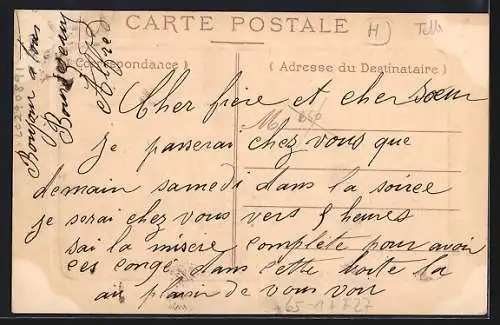 CARTE POSTALE
H
Correspondance )
( Adresse du Destinataire )
Cher frère et cher Sœur
je passerai chez vous que
demain samedi dans la soiree
je serai chez vous vers 5 heures
sai la misère complète pour avoir
ces congé dans cette boite la
au plaisir de vous voir
Bonjour a tous
65-1 727